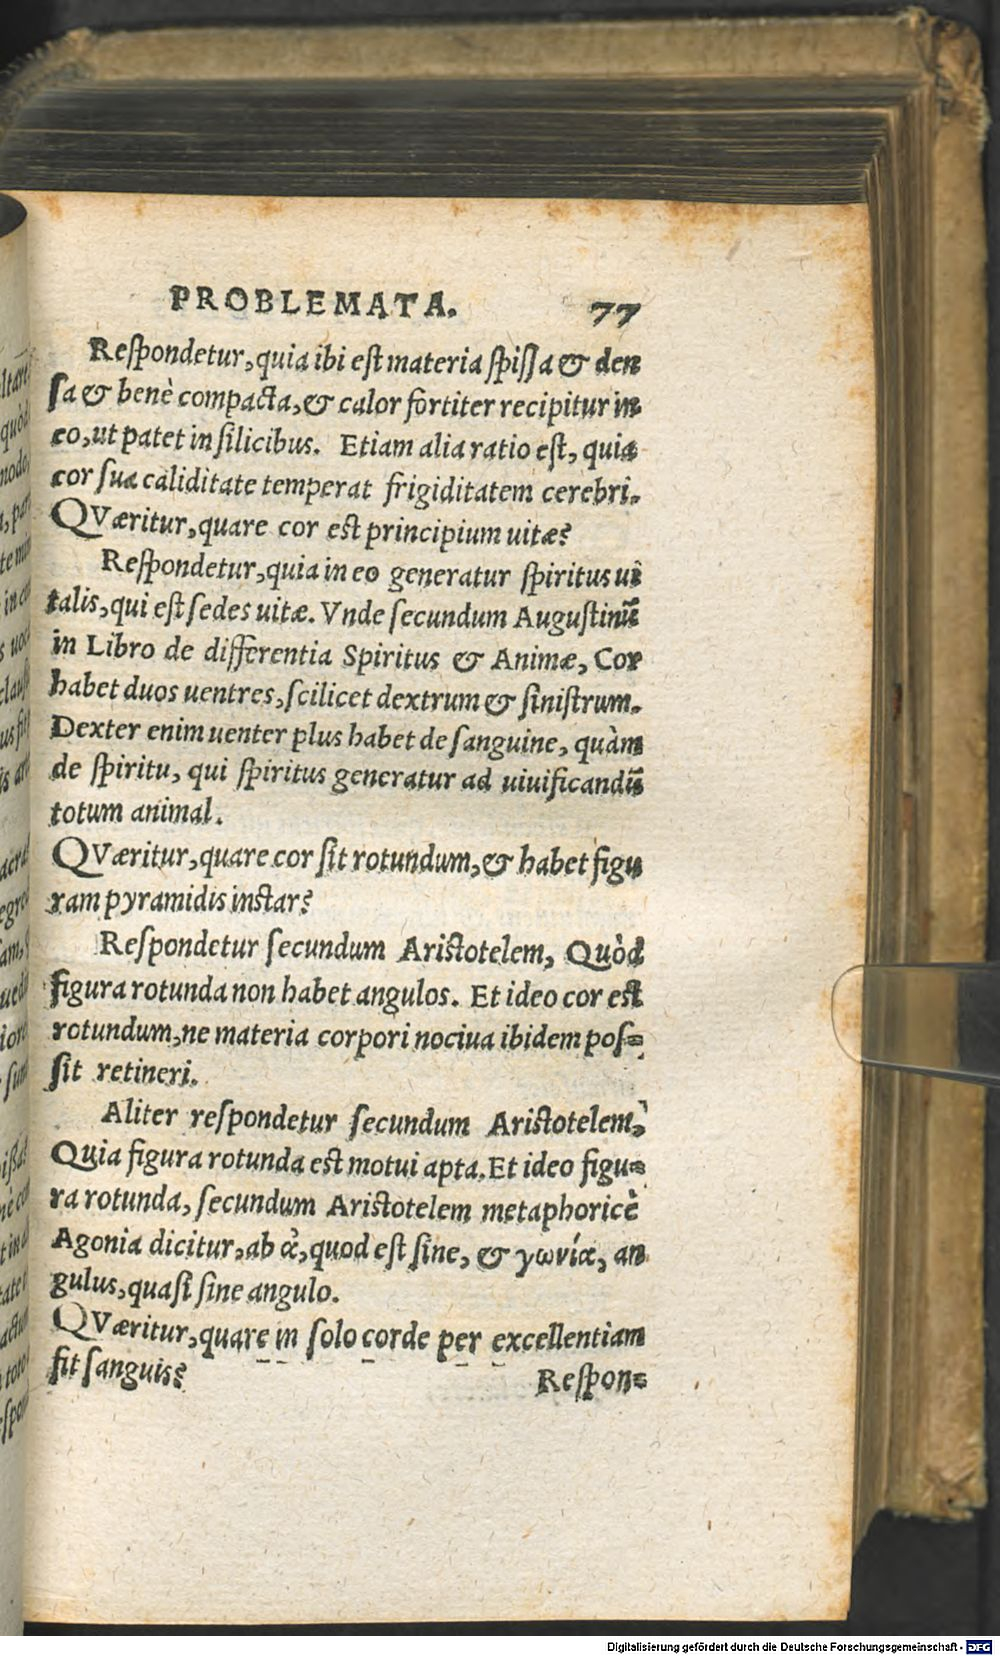 PROBLEMATA. 77
Respondetur, quia ibi est materia spissa & den
sa & benè compacta, & calor fortiter recipitur in
eo, ut patet in silicibus. Etiam alia ratio est, quia
cor sua caliditate temperat frigiditatem cerebri.
QVæritur, quare cor est principium uitæ?
Respondetur, quia in eo generatur spiritus ui
talis, qui est sedes uitæ. Vnde secundum Augustinũ
in Libro de differentia Spiritus & Animæ, Cor
habet duos uentres, scilicet dextrum & sinistrum.
Dexter enim uenter plus habet de sanguine, quàm
de spiritu, qui spiritus generatur ad uiuificandũ
totum animal.
QVæritur, quare cor sit rotundum, & habet figu
ram pyramidis instar?
Respondetur secundum Aristotelem, Quòd
figura rotunda non habet angulos. Et ideo cor est
rotundum, ne materia corpori nociua ibidem pos=
sit retineri.
Aliter respondetur secundum Aristotelem,
Quia figura rotunda est motui apta. Et ideo figu=
ra rotunda, secundum Aristotelem metaphoricè
Agonia dicitur, ab ἀ, quod est sine, & γωνία, an
gulus, quasi sine angulo.
QVæritur, quare in solo corde per excellentiam
fit sanguis?
Respon=
Digitalisierung gefördert durch die Deutsche Forschungsgemeinschaft - DFG